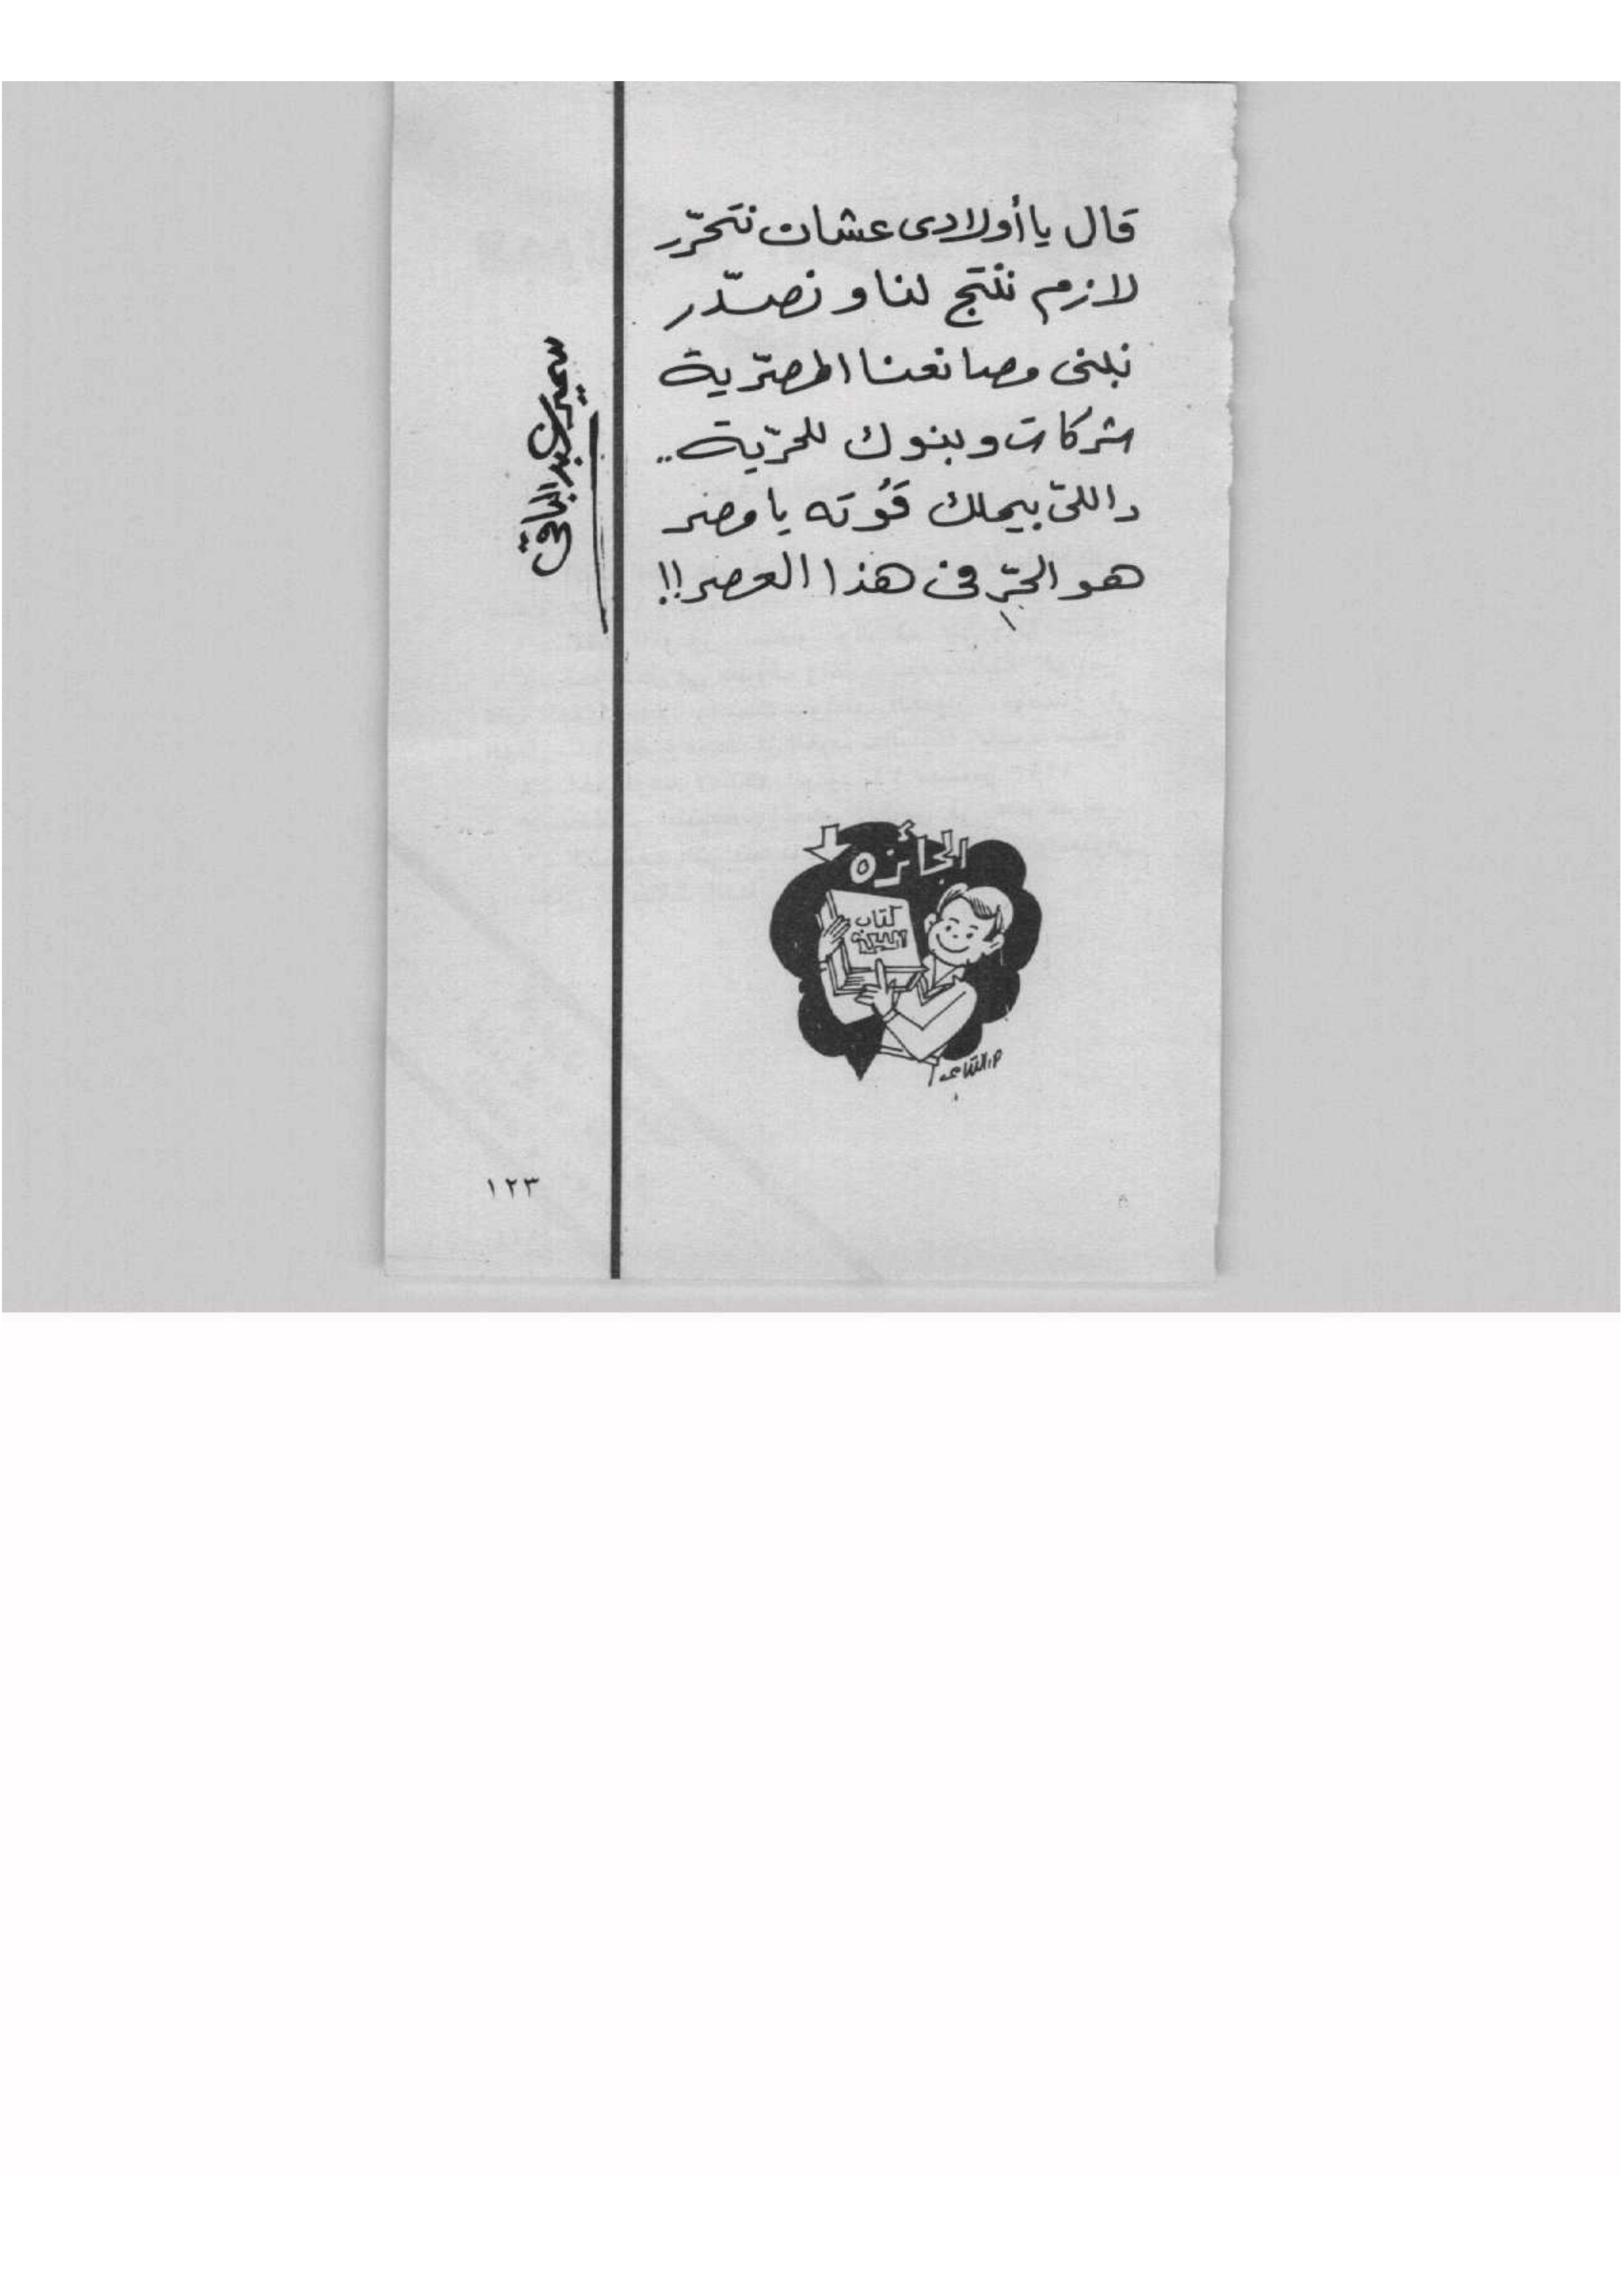 قال يا أولادى عشان نتحرّر
لازم ننتج لنا و نصدّر
نبنى مصانعنا المصرّية
شركات و بنوك للحرّية ..
دا اللىّ بيملك قُوته يا مصر
هو الحرّ فى هذا العصر!!
سمير عبد الباقى
الجائزه
كتاب
١٢٣